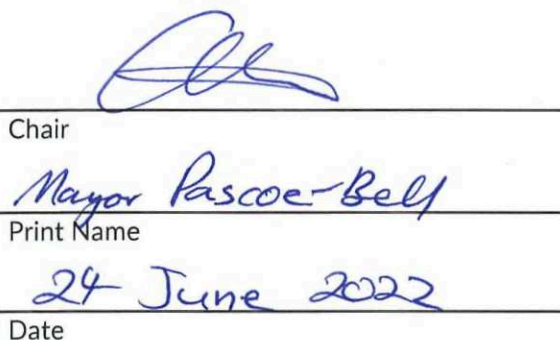 Chair
Mayor Pascoe-Bell
Print Name
24 June 2022
Date